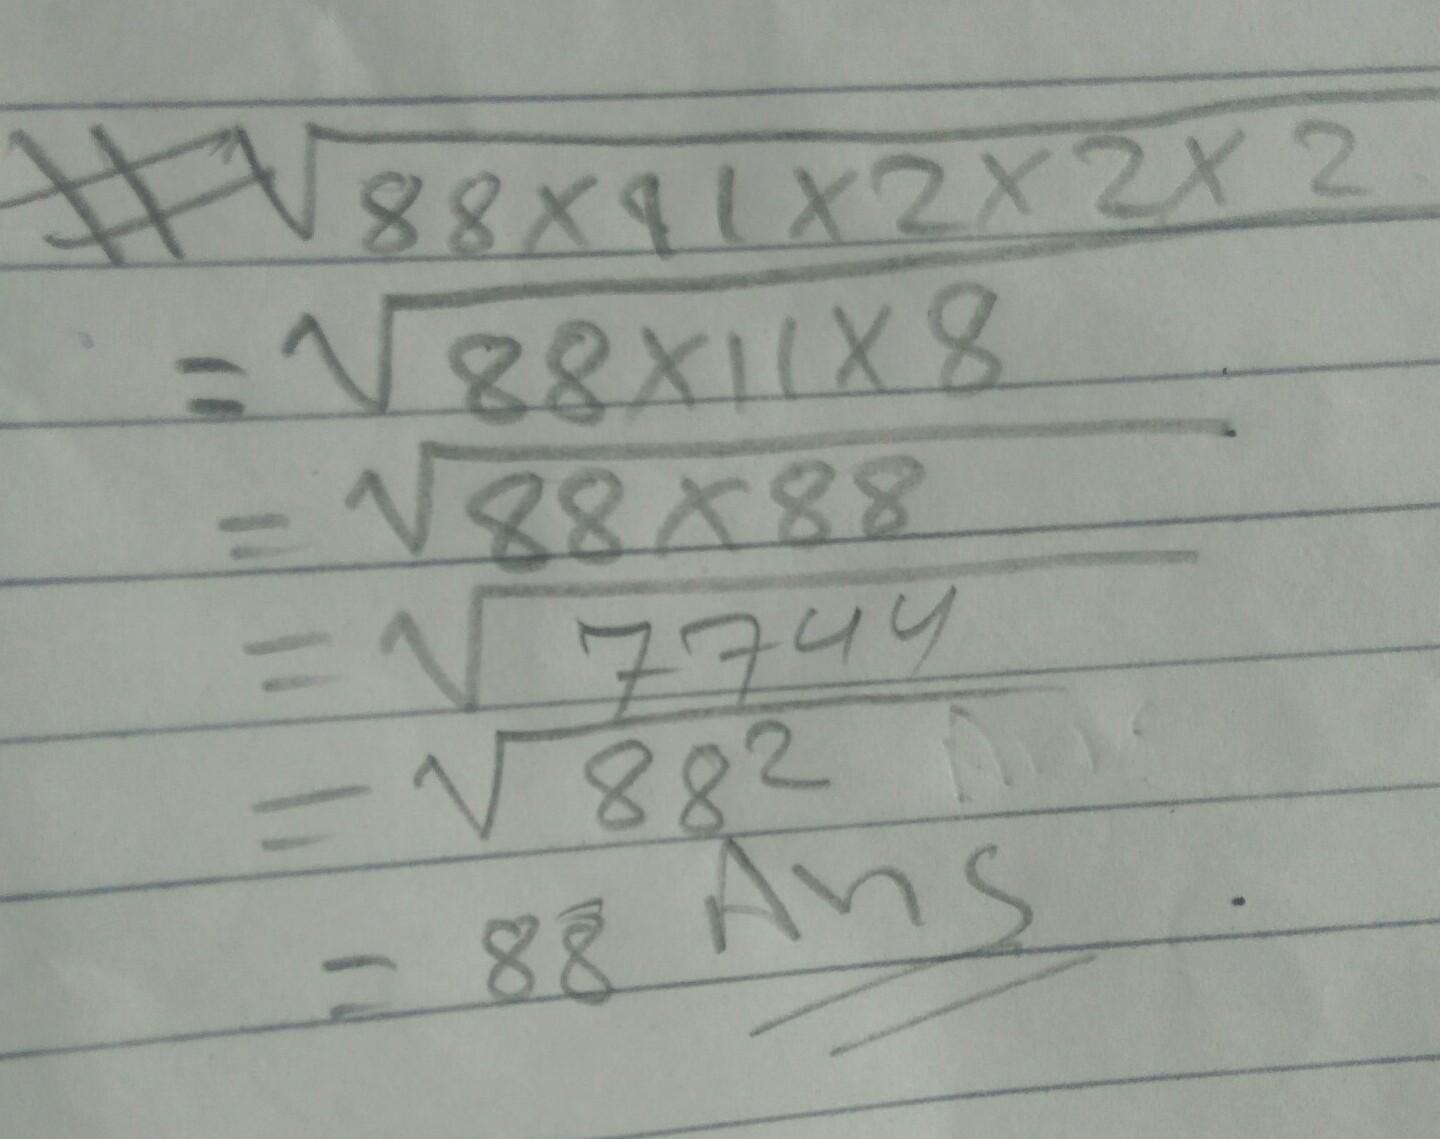 # √88×11×2×2×2
= √88×11×8
= √88×88
= √7744
= √88²
= 88 Ans